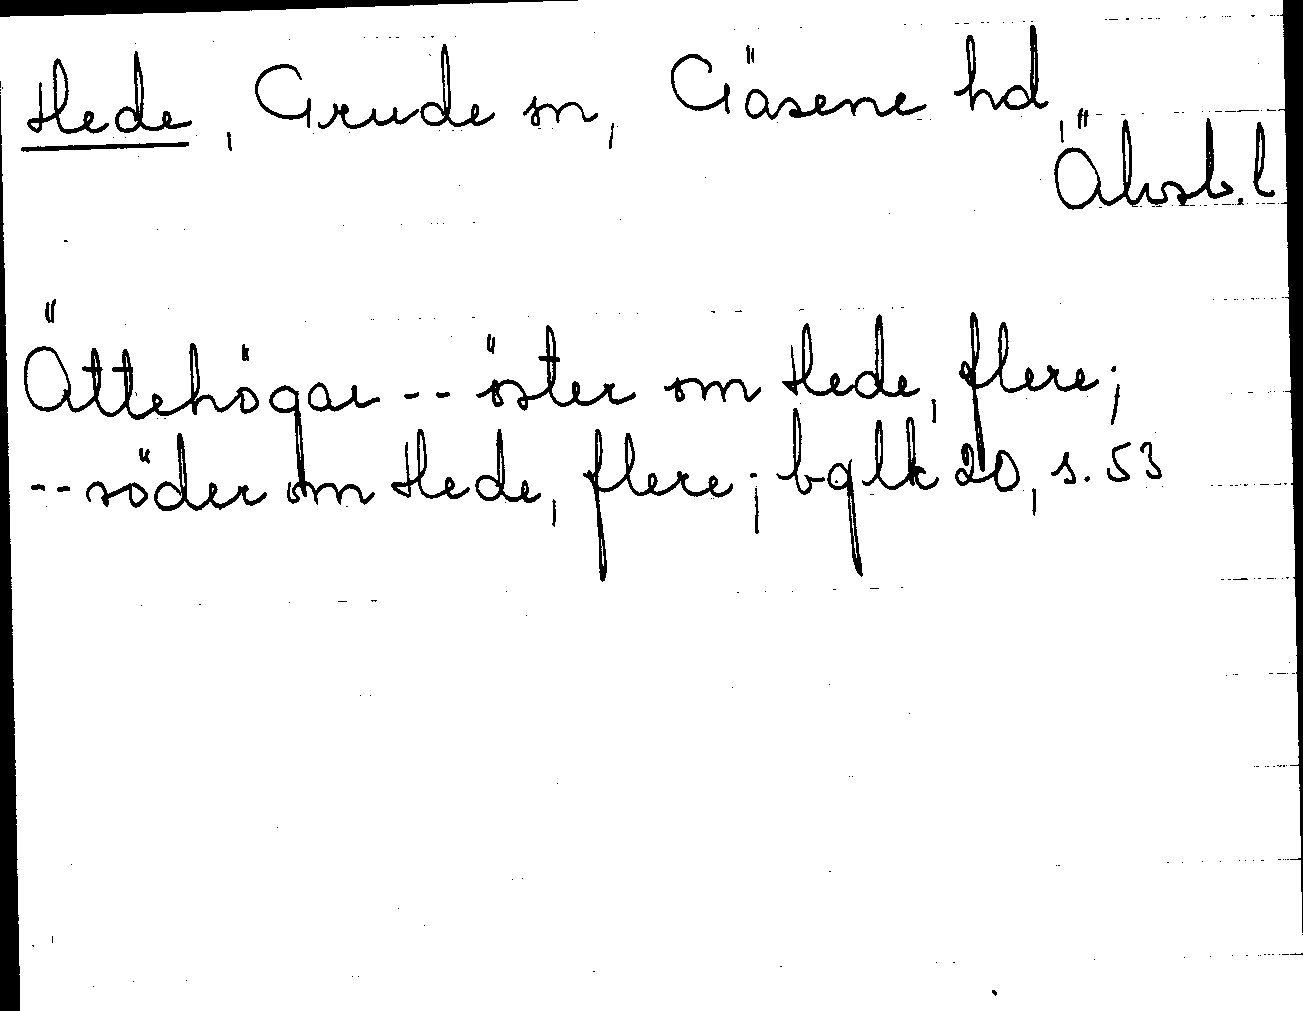 Hede, Grude sn, Gäsene hd,
Älvsb. l
Ättehögar -- öster om Hede, flere;
-- söder om Hede, flere; bglk 20, s. 53